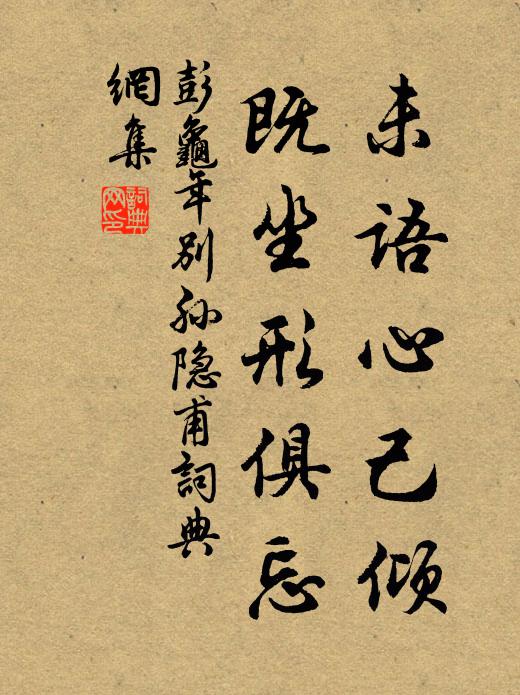 未语心已倾
既坐形俱忘
彭龜年别孙隐甫詞典
網集
詞典
网印